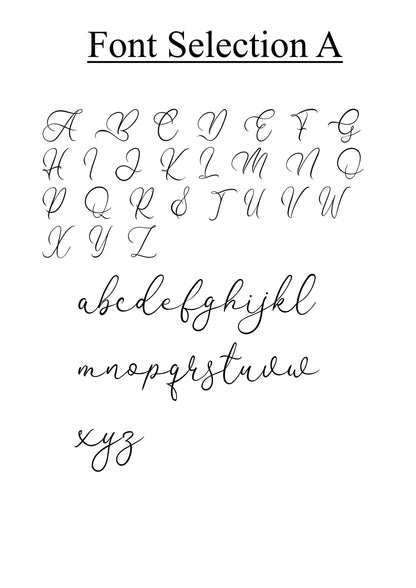 Font Selection A
A B C D E F G
H I J K L M N O
P Q R S T U V W
X Y Z
abcdefghijkl
mnopqrstuvw
xyz